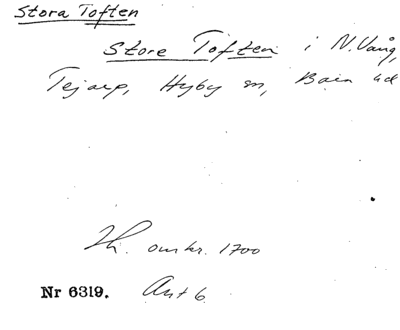 Stora Toften
Store Toften i N. Vång,
Tejarp, Hyby sn, Bara hd
Th. omkr. 1700
Nr 6319. Ant 6